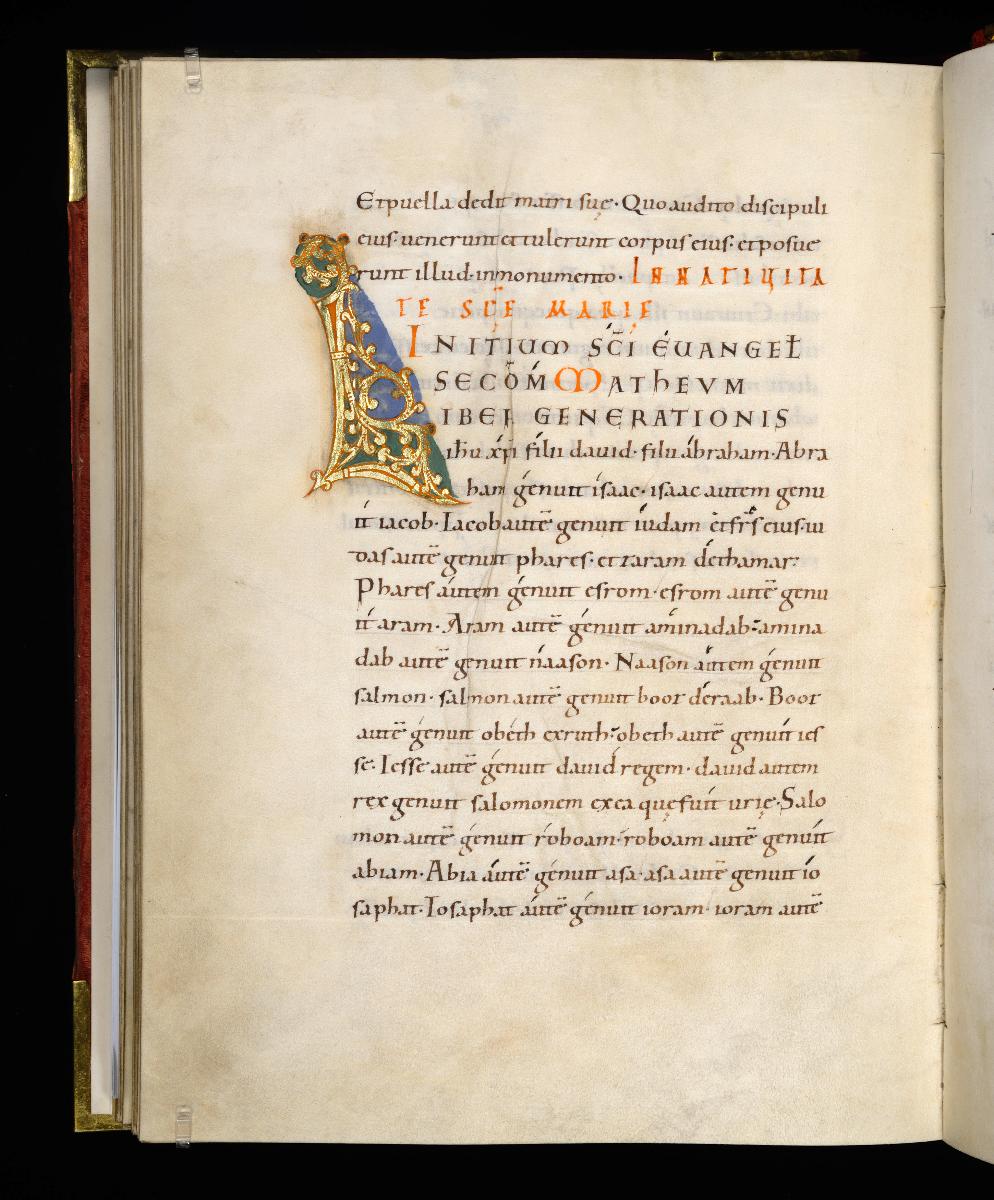 Et puella dedit matri suę· Quo audito discipuli
eius· venerunt et tulerunt corpus eius· et posue
runt illud· in monumento· IN NATIVITA
TE SC̄E MARIE
INITIUM SC̄I EUANGEL̄
SECŌM MATHEVM
LIBER GENERATIONIS
ihu xp̄i filii dauid· filii abraham· Abra
ham genuit isaac· isaac autem genu
it iacob· Iacob autē genuit iudam et fr̄s eius· iu
das autē genuit phares· et zaram de thamar·
Phares autem genuit esrom· esrom autē genu
it aram· Aram autē genuit aminadab· amina
dab autē genuit naason· Naason autem genuit
salmon· salmon autē genuit booz de raab· Booz
autē genuit obeth ex ruth· obeth autē genuit ies
se· Iesse autē genuit dauid regem· dauid autem
rex genuit salomonem ex ea quę fuit urię· Salo
mon autē genuit roboam· roboam autē genuit
abiam· Abia autē genuit asa· asa autē genuit io
saphat· Iosaphat autē genuit ioram· ioram autē